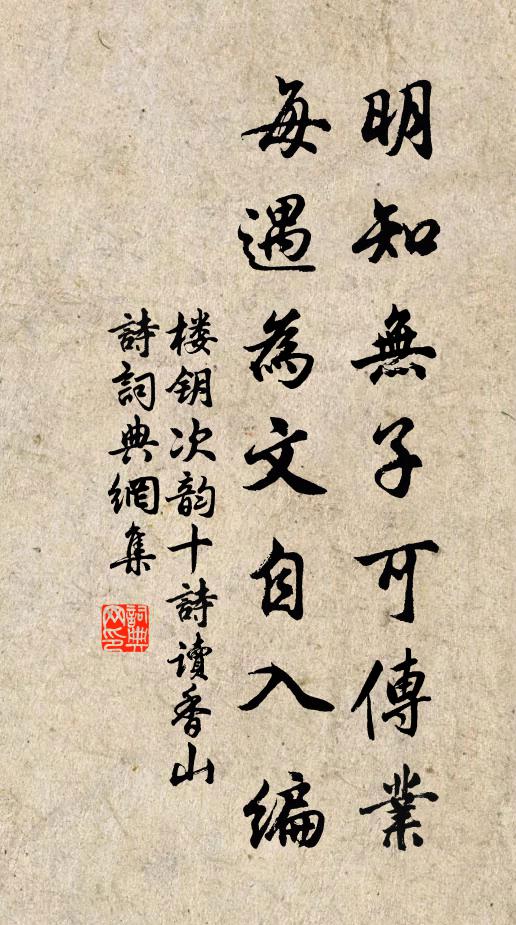 明知無子可傳業
每遇為文自入編
楼钥次韵十詩讀香山
詩詞典網集
詞典网印